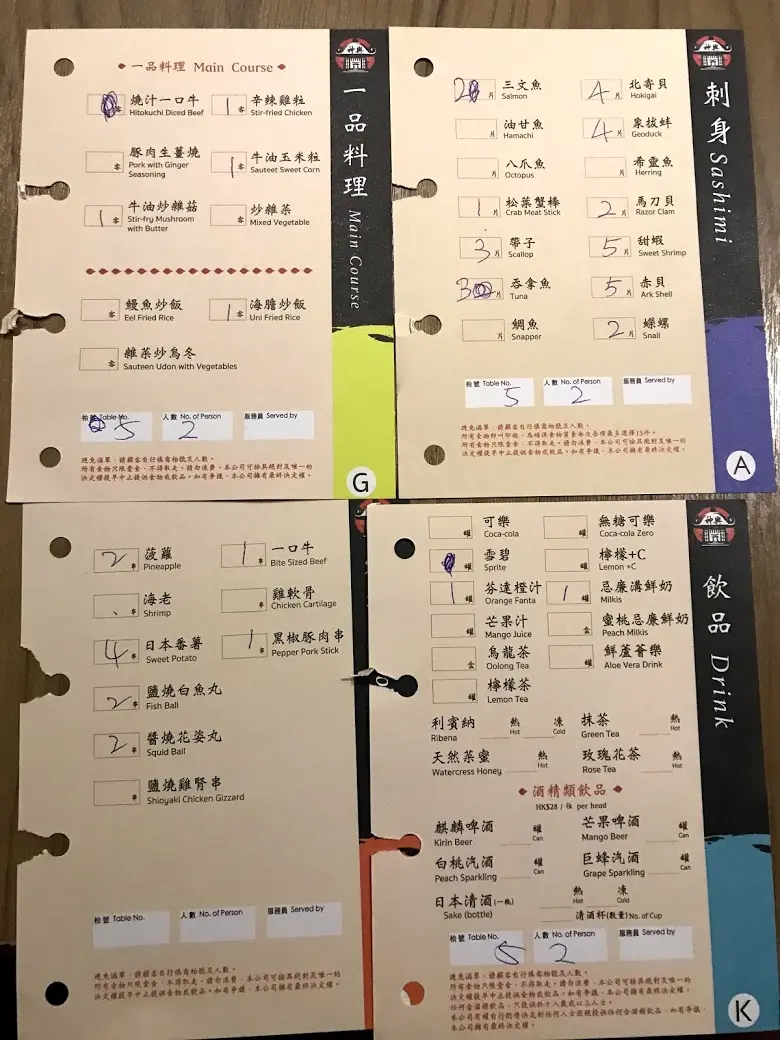 一品料理 Main Course
燒汁一口牛 客
Hitokuchi Diced Beef
1 客 辛辣雞粒
Stir-fried Chicken
客 豚肉生薑燒
Pork with Ginger
Seasoning
1 客 牛油玉米粒
Sauteet Sweet Corn
1 客 牛油炒雜菇
Stir-fry Mushroom
with Butter
客 炒雜菜
Mixed Vegetable
客 鰻魚炒飯
Eel Fried Rice
1 客 海膽炒飯
Uni Fried Rice
客 雜菜炒烏冬
Sauteen Udon with Vegetables
枱號 Table No. 5
人數 No. of Person 2
服務員 Served by
避免漏單，請顧客自行填寫枱號及人數。
所有食物只限堂食，不得取走。請勿浪費，本公司可按其絕對及唯一的
決定權提早中止提供食物或飲品。如有爭議，本公司擁有最終決定權。
神輿
一品料理 Main Course
G
2 片 三文魚
Salmon
4 片 北寄貝
Hokigai
片 油甘魚
Hamachi
4 片 象拔蚌
Geoduck
片 八爪魚
Octopus
片 希靈魚
Herring
1 片 松葉蟹棒
Crab Meat Stick
2 片 馬刀貝
Razor Clam
3 片 帶子
Scallop
5 片 甜蝦
Sweet Shrimp
3 片 吞拿魚
Tuna
5 片 赤貝
Ark Shell
片 鯛魚
Snapper
2 片 螺螺
Snail
枱號 Table No. 5
人數 No. of Person 2
服務員 Served by
避免漏單，請顧客自行填寫枱號及人數。
所有食物即叫即做，為確保食物質素每次各項最多選擇15件。
所有食物只限堂食，不得取走。請勿浪費，本公司可按其絕對及唯一的
決定權提早中止提供食物或飲品。如有爭議，本公司擁有最終決定權。
神輿
刺身 Sashimi
A
2 串 菠蘿
Pineapple
1 串 一口牛
Bite Sized Beef
串 海老
Shrimp
串 雞軟骨
Chicken Cartilage
4 串 日本番薯
Sweet Potato
1 串 黑椒豚肉串
Pepper Pork Stick
2 串 鹽燒白魚丸
Fish Ball
2 串 醬燒花姿丸
Squid Ball
串 鹽燒雞腎串
Shioyaki Chicken Gizzard
枱號 Table No.
人數 No. of Person
服務員 Served by
避免漏單，請顧客自行填寫枱號及人數。
所有食物只限堂食，不得取走。請勿浪費，本公司可按其絕對及唯一的
決定權提早中止提供食物或飲品。如有爭議，本公司擁有最終決定權。
罐 可樂
Coca-cola
罐 無糖可樂
Coca-cola Zero
罐 雪碧
Sprite
罐 檸檬+C
Lemon +C
1 罐 芬達橙汁
Orange Fanta
1 罐 忌廉溝鮮奶
Milkis
罐 芒果汁
Mango Juice
盒 蜜桃忌廉鮮奶
Peach Milkis
盒 烏龍茶
Oolong Tea
罐 鮮蘆薈樂
Aloe Vera Drink
罐 檸檬茶
Lemon Tea
利賓納 熱 凍
Ribena Hot Cold
抹茶 熱
Green Tea Hot
天然菜蜜 熱
Watercress Honey Hot
玫瑰花茶 熱
Rose Tea Hot
酒精類飲品
HK$28 / 位 per head
麒麟啤酒 罐
Kirin Beer Can
芒果啤酒 罐
Mango Beer Can
白桃汽酒 罐
Peach Sparkling Can
巨蜂汽酒 罐
Grape Sparkling Can
日本清酒(一瓶) 熱 凍
Sake (bottle) Hot Cold
清酒杯(數量) No. of Cup
枱號 Table No. 5
人數 No. of Person 2
服務員 Served by
避免漏單，請顧客自行填寫枱號及人數。
所有食物只限堂食，不得取走。請勿浪費，本公司可按其絕對及唯一的
決定權提早中止提供食物或飲品。如有爭議，本公司擁有最終決定權。
任何含酒精飲品，只提供給十八歲或以上人士。
本公司有權自行酌情決定對任何人士拒絕提供任何含酒精飲品，如有爭議，
本公司擁有最終決定權。
神輿
飲品 Drink
K